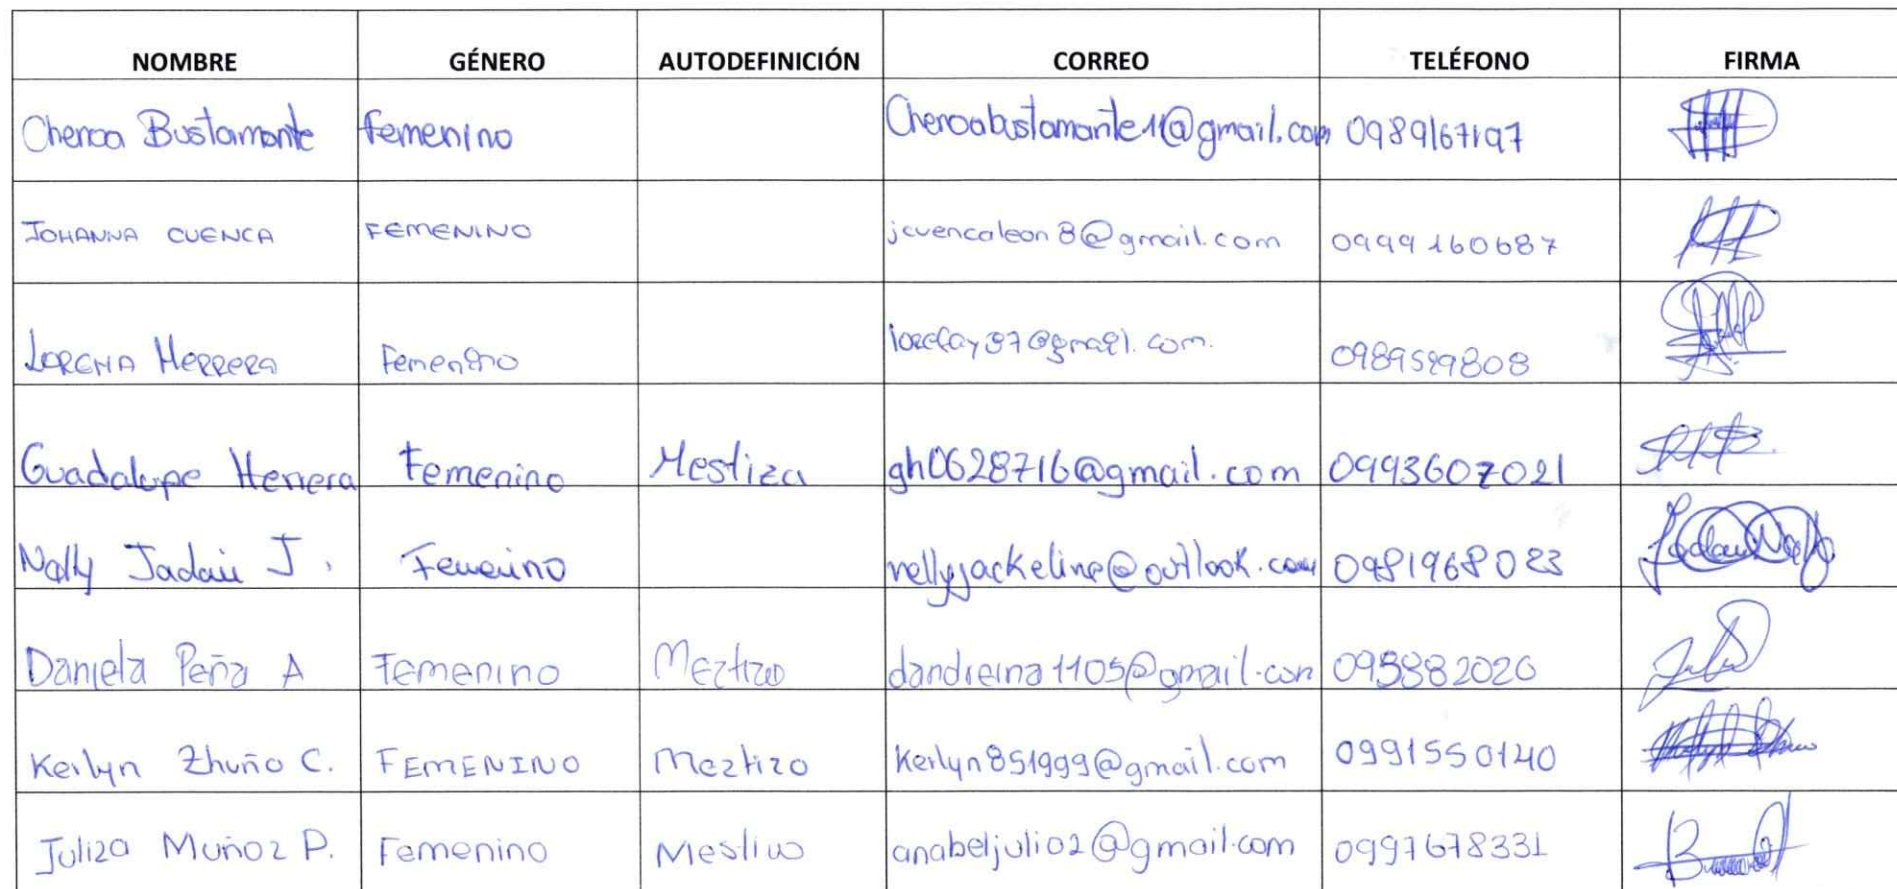 NOMBRE GÉNERO AUTODEFINICIÓN CORREO TELÉFONO FIRMA
Chenoa Bustamante femenino Chenoabustamante11@gmail.com 0989167197
JOHANNA CUENCA FEMENINO jcuencaleon8@gmail.com 0999160687
LORENA HERRERA Femenino 0989599808
Guadalupe Herrera Femenino Mestiza gh0628716@gmail.com 0993607021
Nelly Jadán J. Femenino nellyjackeline@outlook.com 0981968023
Daniela Peña A Femenino Meztizo dandreina1105@gmail.com 095882020
Kerlyn Zhuño C. FEMENINO Meztizo Kerlyn851999@gmail.com 0991550140
Juliza Muñoz P. Femenino Mestizo anabeljulio2@gmail.com 0997678331